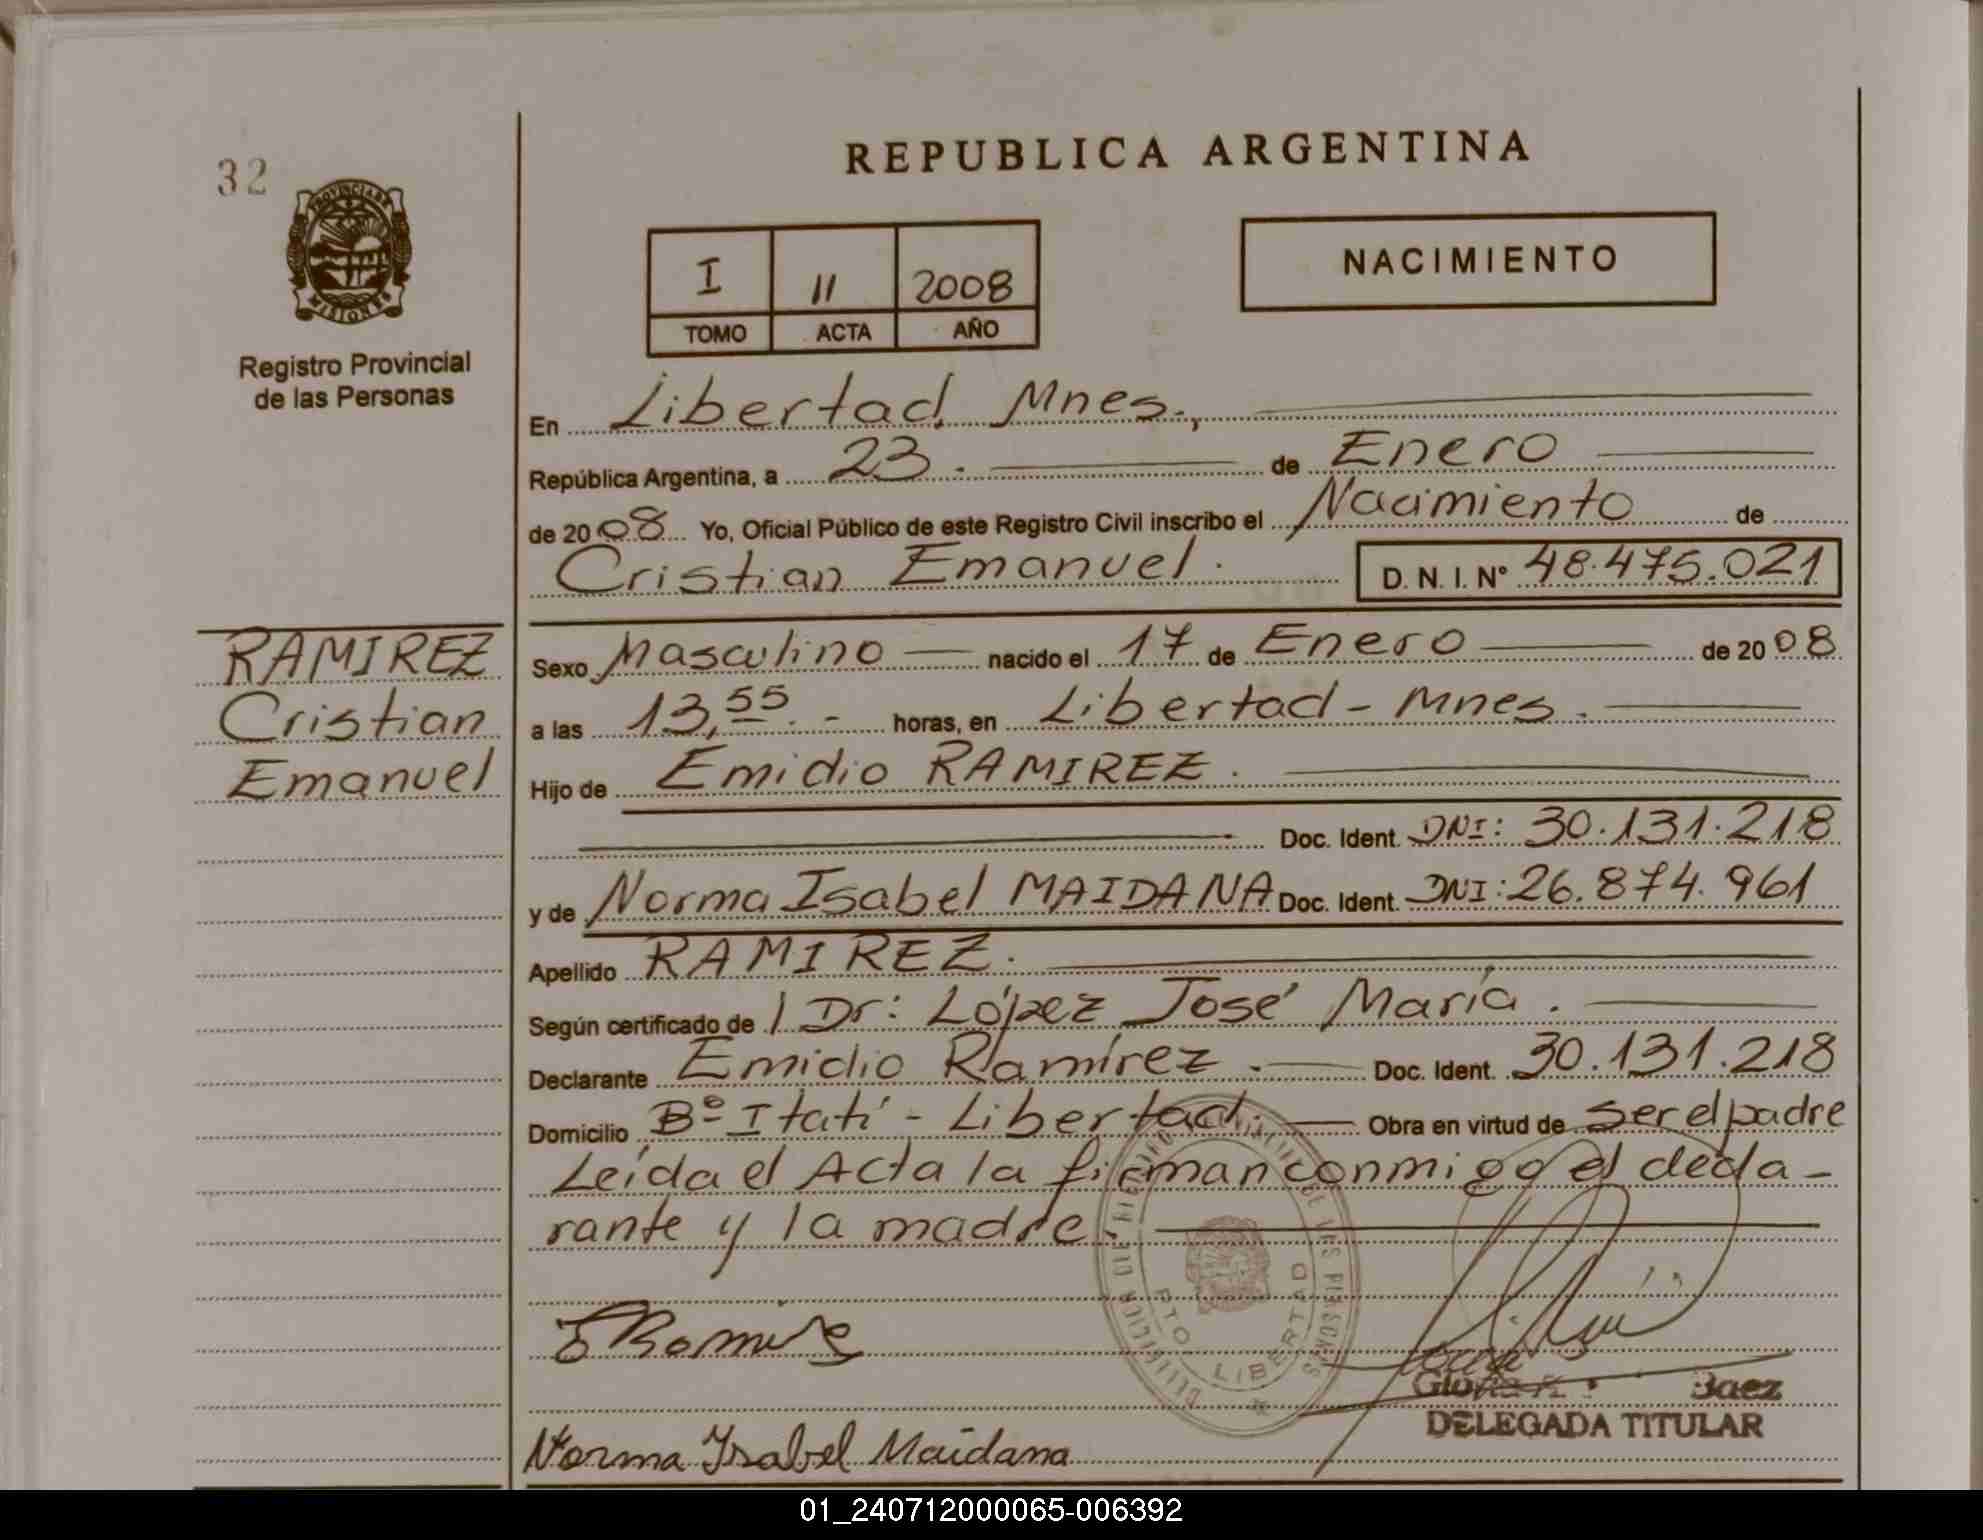 32
PROVINCIA DE
MISIONES
Registro Provincial
de las Personas
REPUBLICA ARGENTINA
I 11 2008
TOMO ACTA AÑO
NACIMIENTO
En Libertad, Mnes.,
República Argentina, a 23. de Enero
de 2008 Yo, Oficial Público de este Registro Civil inscribo el Nacimiento de
Cristian Emanuel. D. N. I. Nº 48.475.021
RAMIREZ
Cristian
Emanuel
Sexo Masculino nacido el 17 de Enero de 2008
a las 13,55.- horas, en Libertad - Mnes.
Hijo de Emidio RAMIREZ.
Doc. Ident. DNI: 30.131.218
y de Norma Isabel MAIDANA Doc. Ident. DNI: 26.874.961
Apellido RAMIREZ.
Según certificado de / Dr: López José María.
Declarante Emidio Ramírez. Doc. Ident. 30.131.218
Domicilio Bº Itatí - Libertad. Obra en virtud de ser el padre
Leída el Acta la firman conmigo el decla-
rante y la madre.
PTO LIBERTAD
Norma Isabel Maidana
Baez
DELEGADA TITULAR
01_240712000065-006392